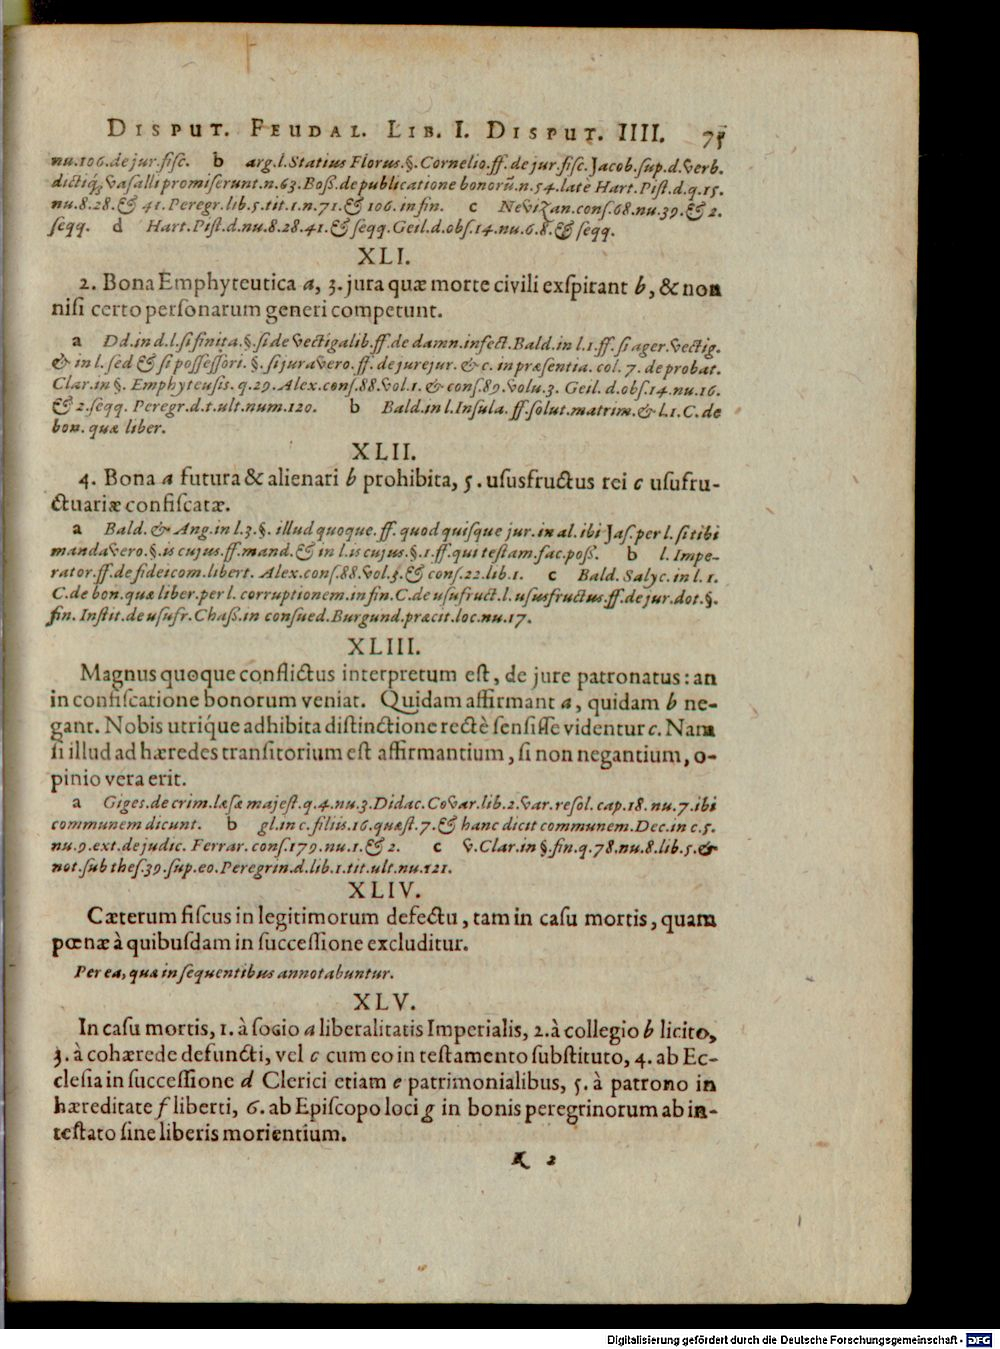 DISPUT. FEUDAL. LIB. I. DISPUT. IIII. 75
nu.106.de jur.fisc. b arg.l.Statius Florus.§.Cornelio.ff.de jur.fisc.Jacob.sup.d.verb.
dictiq́; vasalli promiserunt.n.63.Boß.de publicatione bonorũ.n.54.latè Hart.Pist.d.q.15.
nu.8.28.& 41.Peregr.lib.5.tit.1.n.71.& 106.in fin. c Nevizan.cons.68.nu.39.& 2.
seqq. d Hart.Pist.d.nu.8.28.41.& seqq.Geil.d.obs.14.nu.6.8.& seqq.
XLI.
2. Bona Emphyteutica a, 3. jura quæ morte civili exspirant b, & non
nisi certo personarum generi competunt.
a Dd.in d.l.si finita.§.si de vectigalib.ff.de damn.infect.Bald.in l.1.ff.si ager.vectig.
& in l.sed & si possessori.§.si juravero.ff.de jurejur.& c.in præsentia.col.7.de probat.
Clar.in §. Emphyteusis.q.29.Alex.cons.88.vol.1.& cons.89.volu.3. Geil.d.obs.14.nu.16.
& 2.seqq. Peregr.d.t.ult.num.120. b Bald.in l.Insula.ff.solut.matrim.& l.1.C.de
bon. quæ liber.
XLII.
4. Bona a futura & alienari b prohibita, 5. ususfructus rei c usufru-
ctuariæ confiscatæ.
a Bald. & Ang.in l.3.§. illud quoque.ff. quod quisque jur.in al.ibi Jas.per l.si tibi
mandavero.§.is cujus.ff.mand.& in l.is cujus.§.1.ff.qui testam.fac.poß. b l.Impe-
rator.ff.de fideicom.libert. Alex.cons.88.vol.3.& cons.22.lib.1. c Bald. Salyc.in l.1.
C.de bon.quæ liber.per l. corruptionem.in fin.C.de usufruct.l.ususfructus.ff.de jur.dot.§.
fin. Instit.de usufr.Chaß.in consued.Burgund.præcit.loc.nu.17.
XLIII.
Magnus quoque conflictus interpretum est, de jure patronatus: an
in confiscatione bonorum veniat. Quidam affirmant a, quidam b ne-
gant. Nobis utrique adhibita distinctione rectè sensisse videntur c. Nam
si illud ad hæredes transitorium est affirmantium, si non negantium, o-
pinio vera erit.
a Giges.de crim.læsæ majest.q.4.nu.3.Didac.Covar.lib.2.var.resol.cap.18.nu.7.ibi
communem dicunt. b gl.in c.filiis.16.quæst.7.& hanc dicit communem.Dec.in c.5.
nu.9.ext.de judic. Ferrar.cons.179.nu.1.& 2. c v.Clar.in §.fin.q.78.nu.8.lib.5.&
not.sub thes.39.sup.eo.Peregrin.d.lib.1.tit.ult.nu.121.
XLIV.
Cæterum fiscus in legitimorum defectu, tam in casu mortis, quam
pœnæ à quibusdam in successione excluditur.
Per ea, quæ in sequentibus annotabuntur.
XLV.
In casu mortis, 1. à socio a liberalitatis Imperialis, 2. à collegio b licito,
3. à cohærede defuncti, vel c cum eo in testamento substituto, 4. ab Ec-
clesia in successione d Clerici etiam e patrimonialibus, 5. à patrono in
hæreditate f liberti, 6. ab Episcopo loci g in bonis peregrinorum ab in-
testato sine liberis morientium.
K 2
Digitalisierung gefördert durch die Deutsche Forschungsgemeinschaft - DFG